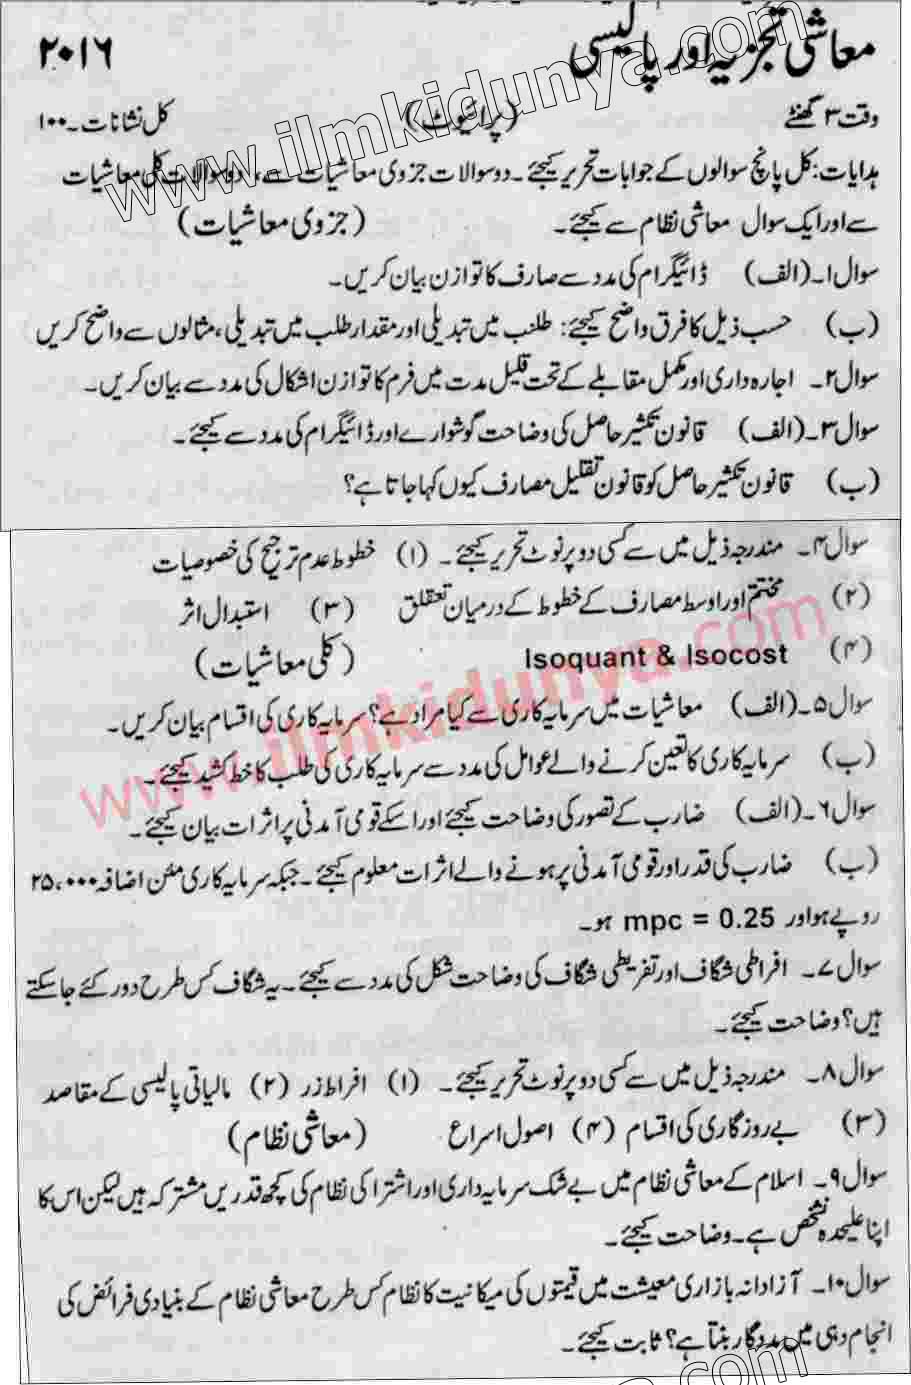 معاشی تجزیہ اور پالیسی ۲۰۱۶
وقت ۳ گھنٹے (پرائیوٹ) کل نشانات۔۱۰۰
ہدایات: کل پانچ سوالوں کے جوابات تحریر کیجئے۔ دو سوالات جزوی معاشیات سے، دو سوالات کلی معاشیات
سے اور ایک سوال معاشی نظام سے کیجئے۔ (جزوی معاشیات)
سوال ۱۔ (الف) ڈائیگرام کی مدد سے صارف کا توازن بیان کریں۔
(ب) حسب ذیل کا فرق واضح کیجئے: طلب میں تبدیلی اور مقدار طلب میں تبدیلی، مثالوں سے واضح کریں
سوال ۲۔ اجارہ داری اور مکمل مقابلے کے تحت قلیل مدت میں فرم کا توازن اشکال کی مدد سے بیان کریں۔
سوال ۳۔ (الف) قانون تکثیر حاصل کی وضاحت گوشوارے اور ڈائیگرام کی مدد سے کیجئے۔
(ب) قانون تکثیر حاصل کو قانون تقلیل مصارف کیوں کہا جاتا ہے؟
سوال ۴۔ مندرجہ ذیل میں سے کسی دو پر نوٹ تحریر کیجئے۔ (۱) خطوط عدم ترجیح کی خصوصیات
(۲) مختتم اور اوسط مصارف کے خطوط کے درمیان تعلق (۳) استبدال اثر
(۴) Isoquant & Isocost (کلی معاشیات)
سوال ۵۔ (الف) معاشیات میں سرمایہ کاری سے کیا مراد ہے؟ سرمایہ کاری کی اقسام بیان کریں۔
(ب) سرمایہ کاری کا تعین کرنے والے عوامل کی مدد سے سرمایہ کاری کی طلب کا خط کشید کیجئے۔
سوال ۶۔ (الف) ضارب کے تصور کی وضاحت کیجئے اور اسکے قومی آمدنی پر اثرات بیان کیجئے۔
(ب) ضارب کی قدر اور قومی آمدنی پر ہونے والے اثرات معلوم کیجئے۔ جبکہ سرمایہ کاری میں اضافہ ۲۵،۰۰۰
روپے ہو اور mpc = 0.25 ہو۔
سوال ۷۔ افراطی شگاف اور تفریطی شگاف کی وضاحت شکل کی مدد سے کیجئے۔ یہ شگاف کس طرح دور کئے جا سکتے
ہیں؟ وضاحت کیجئے۔
سوال ۸۔ مندرجہ ذیل میں سے کسی دو پر نوٹ تحریر کیجئے۔ (۱) افراط زر (۲) مالیاتی پالیسی کے مقاصد
(۳) بے روزگاری کی اقسام (۴) اصول اسراع (معاشی نظام)
سوال ۹۔ اسلام کے معاشی نظام میں بے شک سرمایہ داری اور اشتراکی نظام کی کچھ قدریں مشترکہ ہیں لیکن اس کا
اپنا علیحدہ تشخص ہے۔ وضاحت کیجئے۔
سوال ۱۰۔ آزادانہ بازاری معیشت میں قیمتوں کی میکانیت کا نظام کس طرح معاشی نظام کے بنیادی فرائض کی
انجام دہی میں مددگار بنتا ہے؟ ثابت کیجئے۔
www.ilmkidunya.com
www.ilmkidunya.com